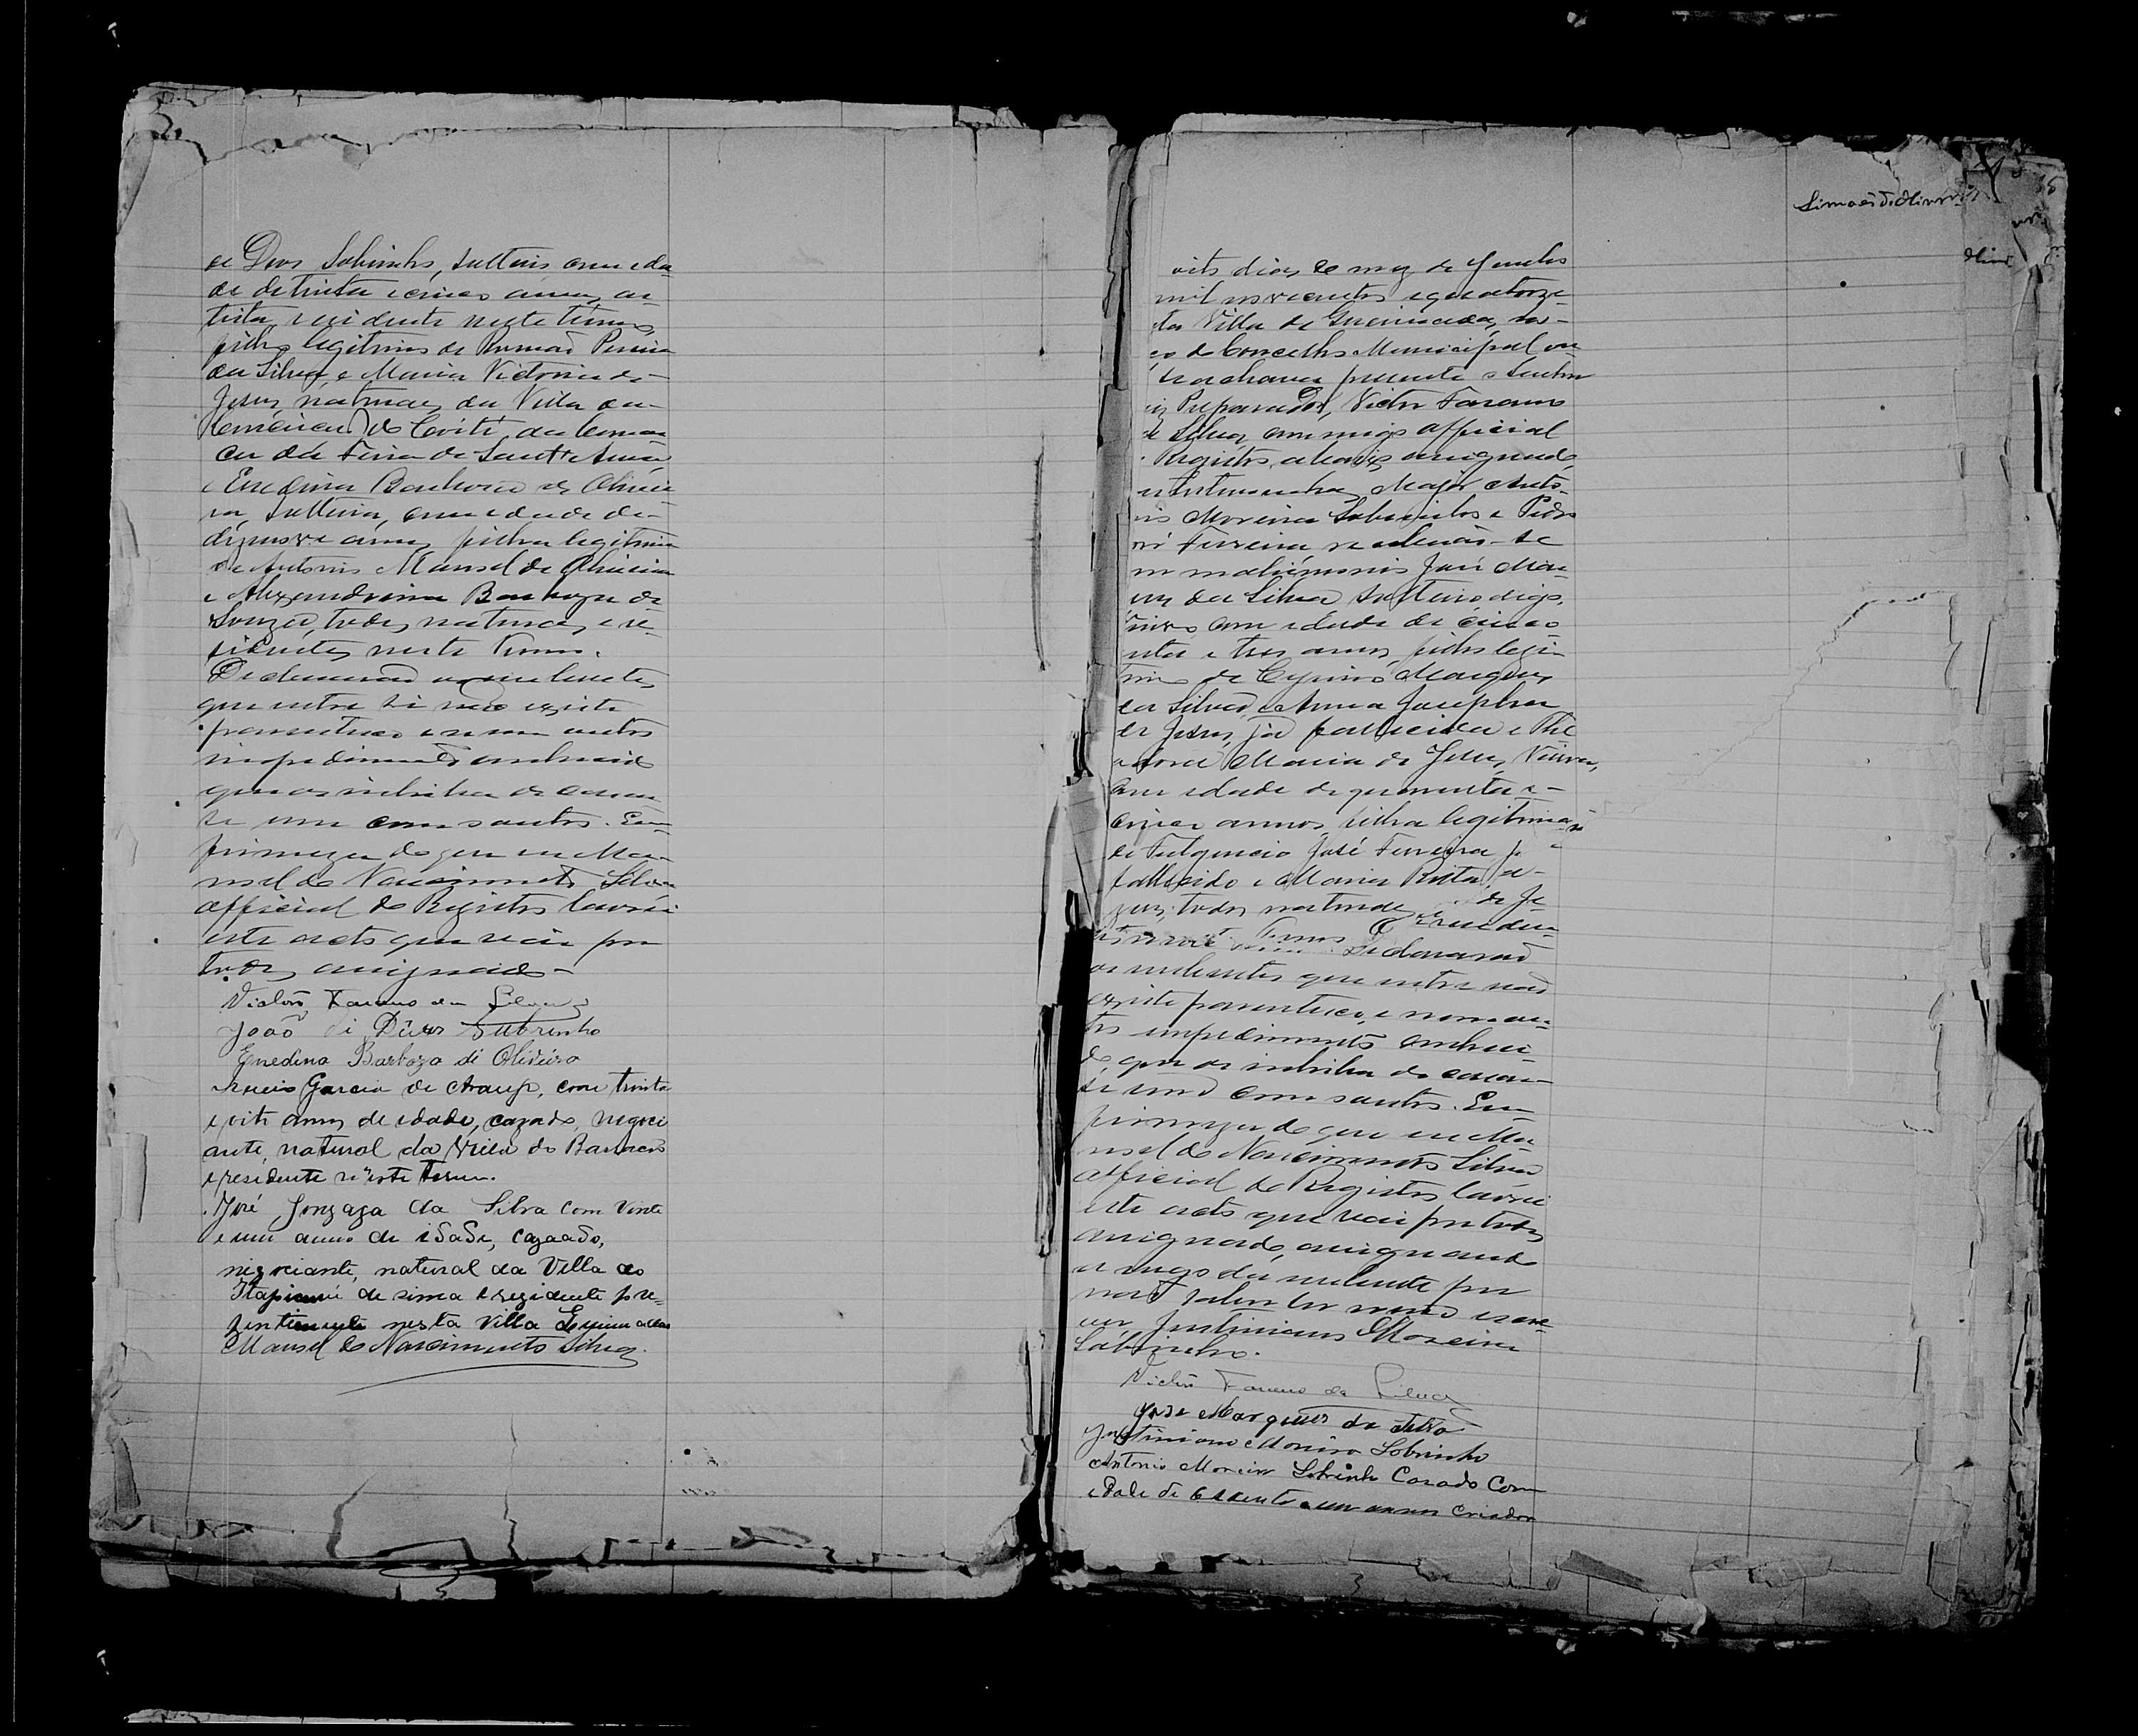 de Deos Sobrinho, solteiro com eda-
de de trinta e cinco annos, ar-
tista, residente neste termo,
filho legitimo de Romão Pereira
da Silva e Maria Victoria de
Jesus, naturaes da Villa da
Conceicão do Coité, da Comar-
ca da Feira de Sant'Anna,
e Enedina Barboza de Olivei-
ra, solteira, com edade de
dezenove annos, filha legitima
de Antonio Manoel de Oliveira
e Alexandrina Barboza de
Souza, todos naturaes e re-
sidentes neste Termo.
Declararão os nubentes,
que entre si não existe
parentesco e nem outro
impedimento conhecido
que os inhiba de casar-
se um com o outro. Em
firmeza do que eu Ma-
noel do Nascimento Silva
official do Registro lavrei
este acto que vai por
todos assignado.
Victor Fanano da Silva
João di Dios Subrinho
Enedina Barboza di Oliveira
Garcia de Araujo, com trinta
e oito annos de edade, cazado, negoci
ante, natural da Villa do
e residente n'este termo.
José Gonzaga da Silva com vinte
e um anno de idade, cazado,
negociante, natural da Villa do
Itapicurú de sima e rezidente pre-
zentimente nesta Villa
Manoel do Nascimento Silva.
Simão de Oliveira
oito dias do mez de Junho
mil novecentos e quatorze
ta Villa de Queimadas, no
ço do Concelho Municipal on
se achava presente o Senhor
iz Preparador, Victor Fanano
da Silva, commigo official
Registro, abaixo assignado,
as testemunhas, Major Anto-
nio Moreira Sobrinho e Pedro
sé Ferreira, receberão-se
em matrimonio José Mar-
ques da Silva, solteiro digo,
viuvo com edade de cinco
enta e tres annos, filho legi-
timo de Cyrino Marques
da Silva e Anna Josepha
de Jesus, já fallecida e The
odora Maria de Jesus, Viuva,
com edade de quarenta e
cinco annos, filha legitima
de Fulgencio José Ferreira já
fallecido e Maria Rita de Je-
sus, todos naturaes e residen
tes neste Termo. Declararão
os nubentes que entre não
existe parentesco, e nem ou-
tro impedimento conheci-
do que os inhiba de casar-
se um com o outro. Em
firmeza do que eu Ma
noel do Nascimento Silva
official do Registro lavrei
este acto que vai por todos
assignado, assignando
a rogo da nubente por
não saber ler nem escre-
ver Justiniano Moreira
Sobrinho.
Victor Fanano da Silva
Jose Marques da Silva
Justiniano Moreira Sobrinho
Antonio Moreira Sobrinho Casado Com
edade de sesenta e um annos Criador